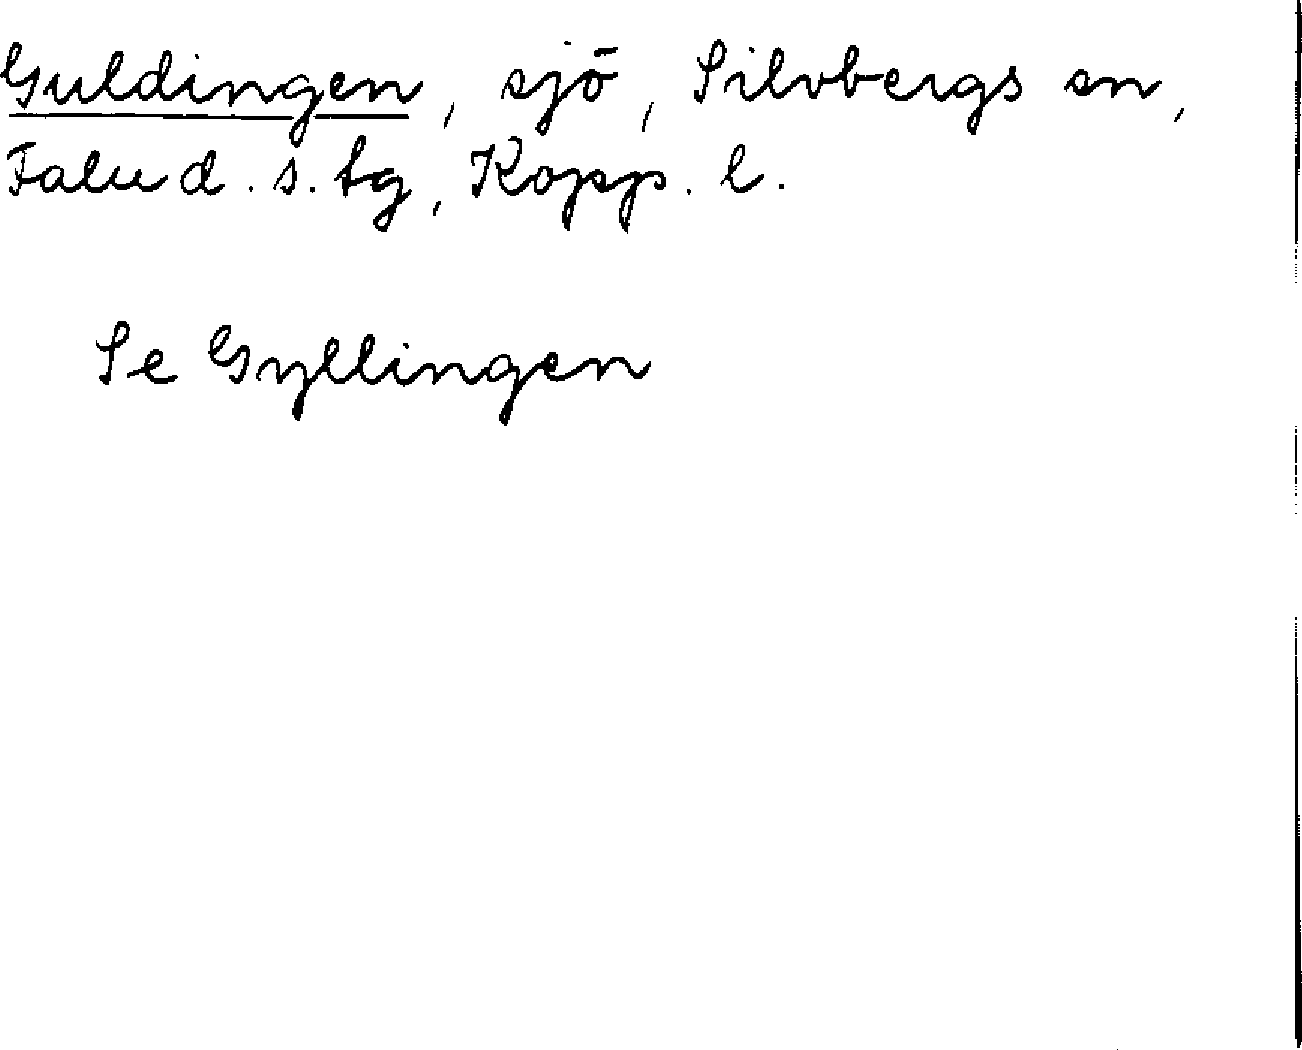 Guldingen, sjö, Silvbergs sn,
Falu d. s. tg, Kopp. l.
Se Gyllingen